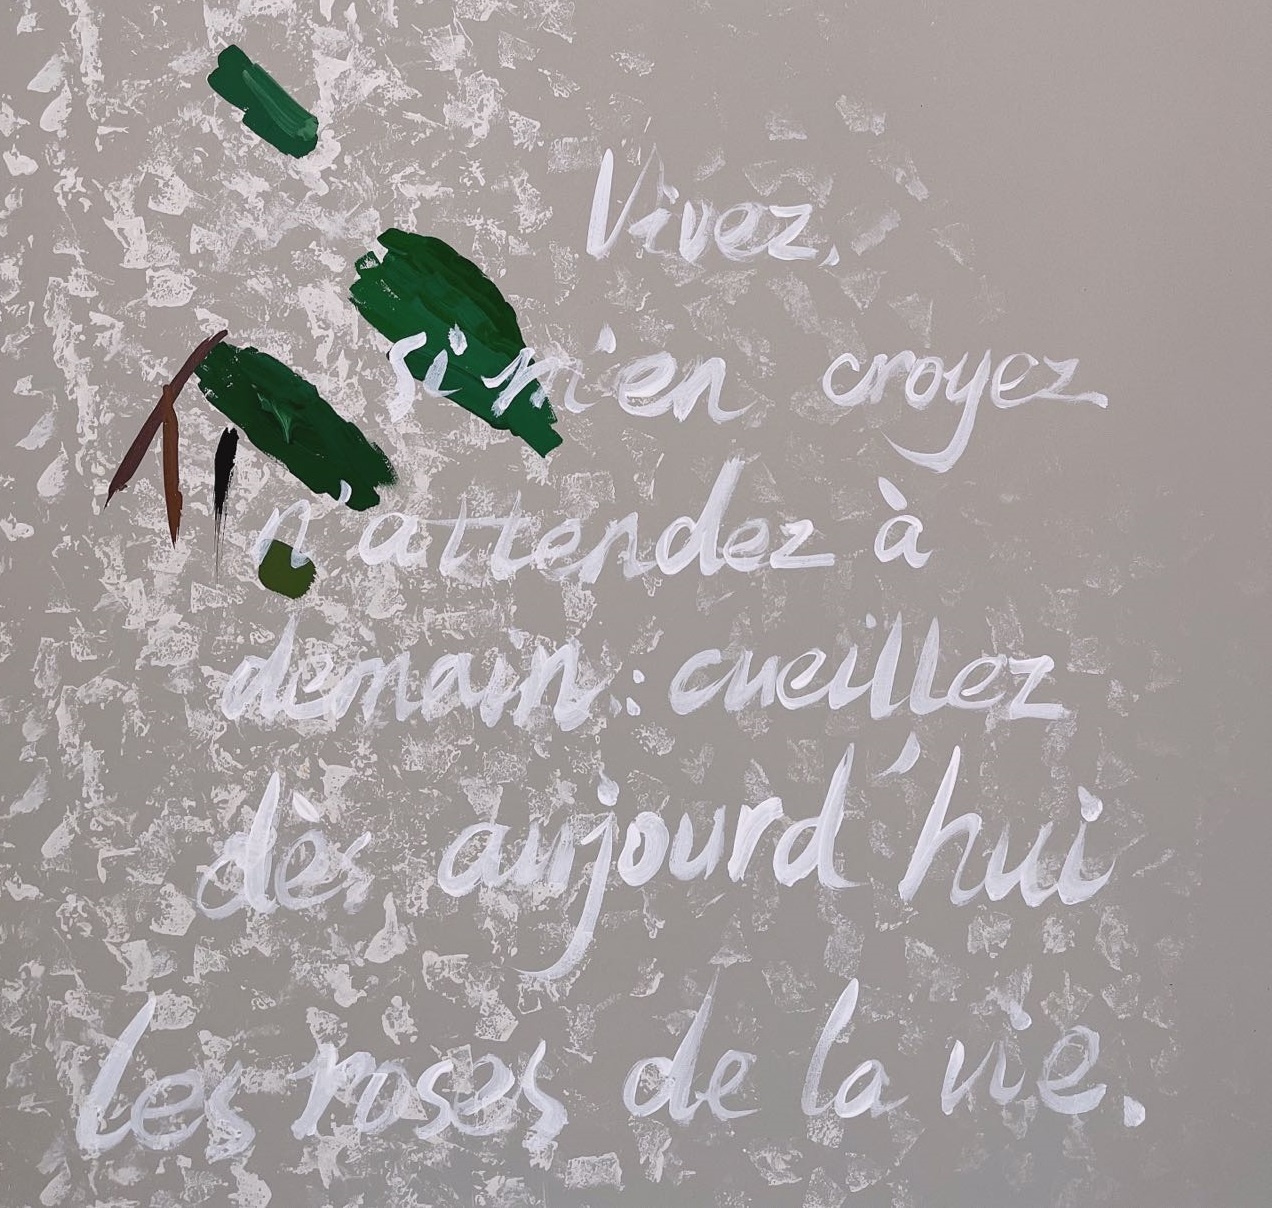 Vivez,
si m'en croyez
n'attendez à
demain : cueillez
dès aujourd'hui
les roses de la vie.